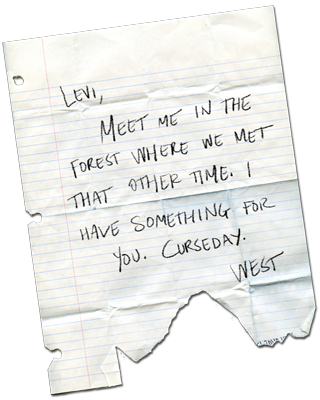 LEVI,
MEET ME IN THE
FOREST WHERE WE MET
THAT OTHER TIME. I
HAVE SOMETHING FOR
YOU. CURSEDAY.
WEST